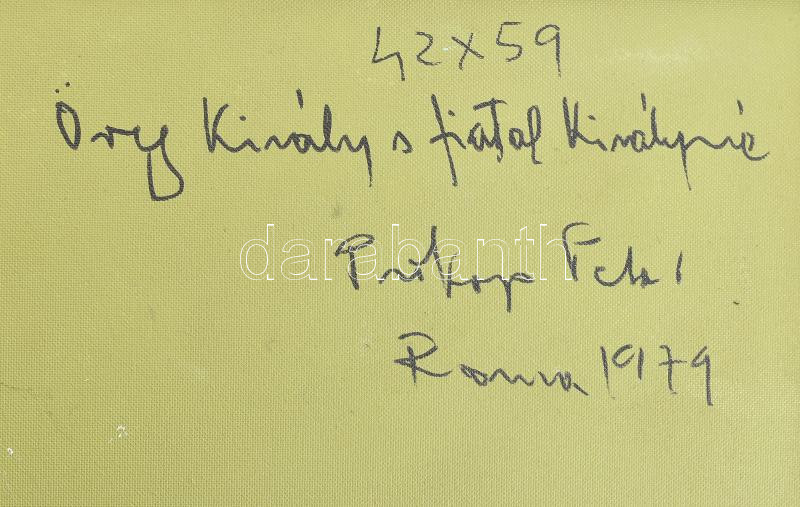 42x59
Öreg Király s fiatal Királyné
darabanth
Prokop
Roma 1979